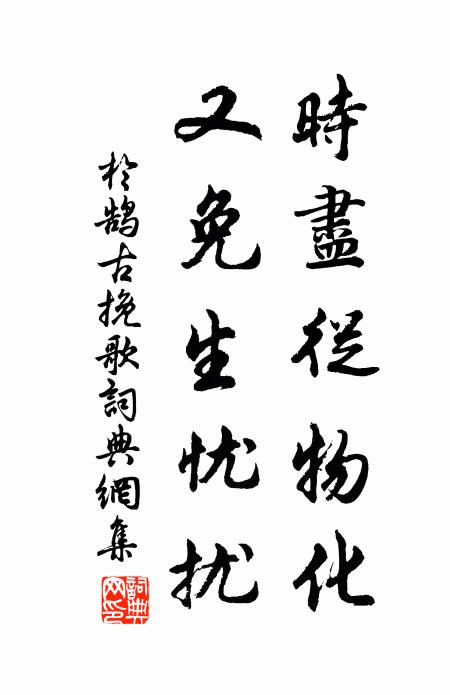 時盡從物化
又免生忧扰
於鹄古挽歌詞典網集
詞典
网印